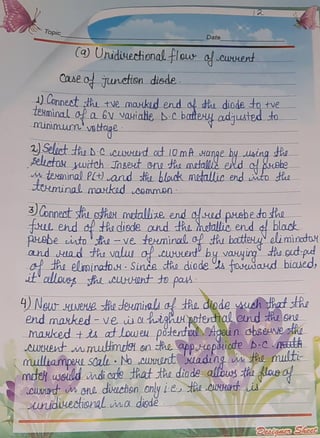 12
Topic
Date
(a) Unidirectional flow of current
Case of junction diode.
1) Connect the +ve marked end of the diode to +ve
terminal of a 6V variable D.C battery adjusted to
minimum voltage
2) Select the D.C current at 10 mA range by using the
selector switch Insert one the metallic end of probe
in terminal P(+) and the black metallic end into the
terminal marked common.
3) Connect the other metallize end of red probe to the
free end of the diode and the metallic end of black
probe into the -ve terminal of the battery eliminator
and read the value of current by varying the out-put
of the elminator. Since the diode is forward biased,
it allows the current to pass.
4) Now reverse the terminals of the diode such that the
end marked -ve is a higher potential and the one
marked + is at lower potential Again observe the
current in multimeter on the appropriate D.C
mullampere scale. No current reading in the multi-
meter would indicate that the diode allows the flow of
current in one direction only i.e, the current is
unidirectional in a diode
Designer Sheets